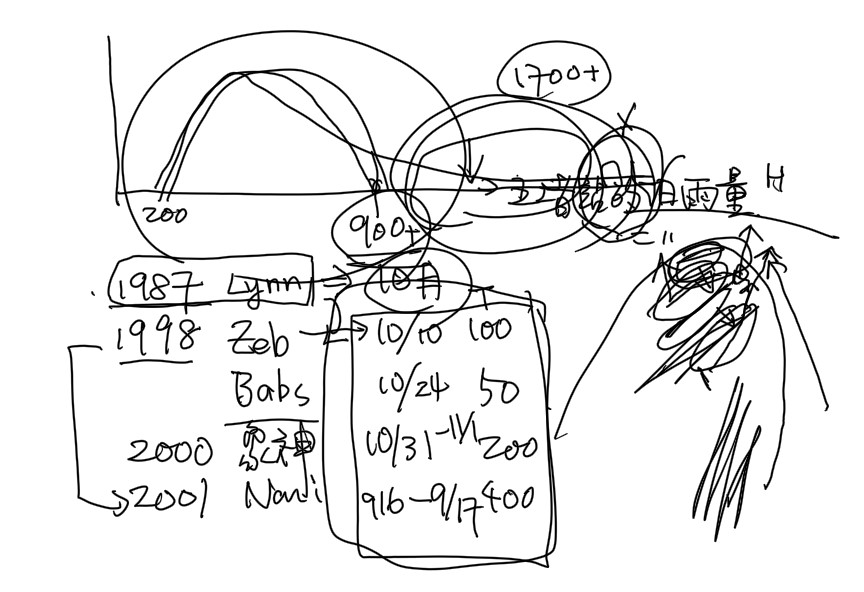 1700+
日雨量 H
200
900+
1987 Lynn 10月
1998 Zeb 10/10 100
Babs 10/24 50
2000 象神 10/31-11/1 200
2001 Nari 916-9/17 400